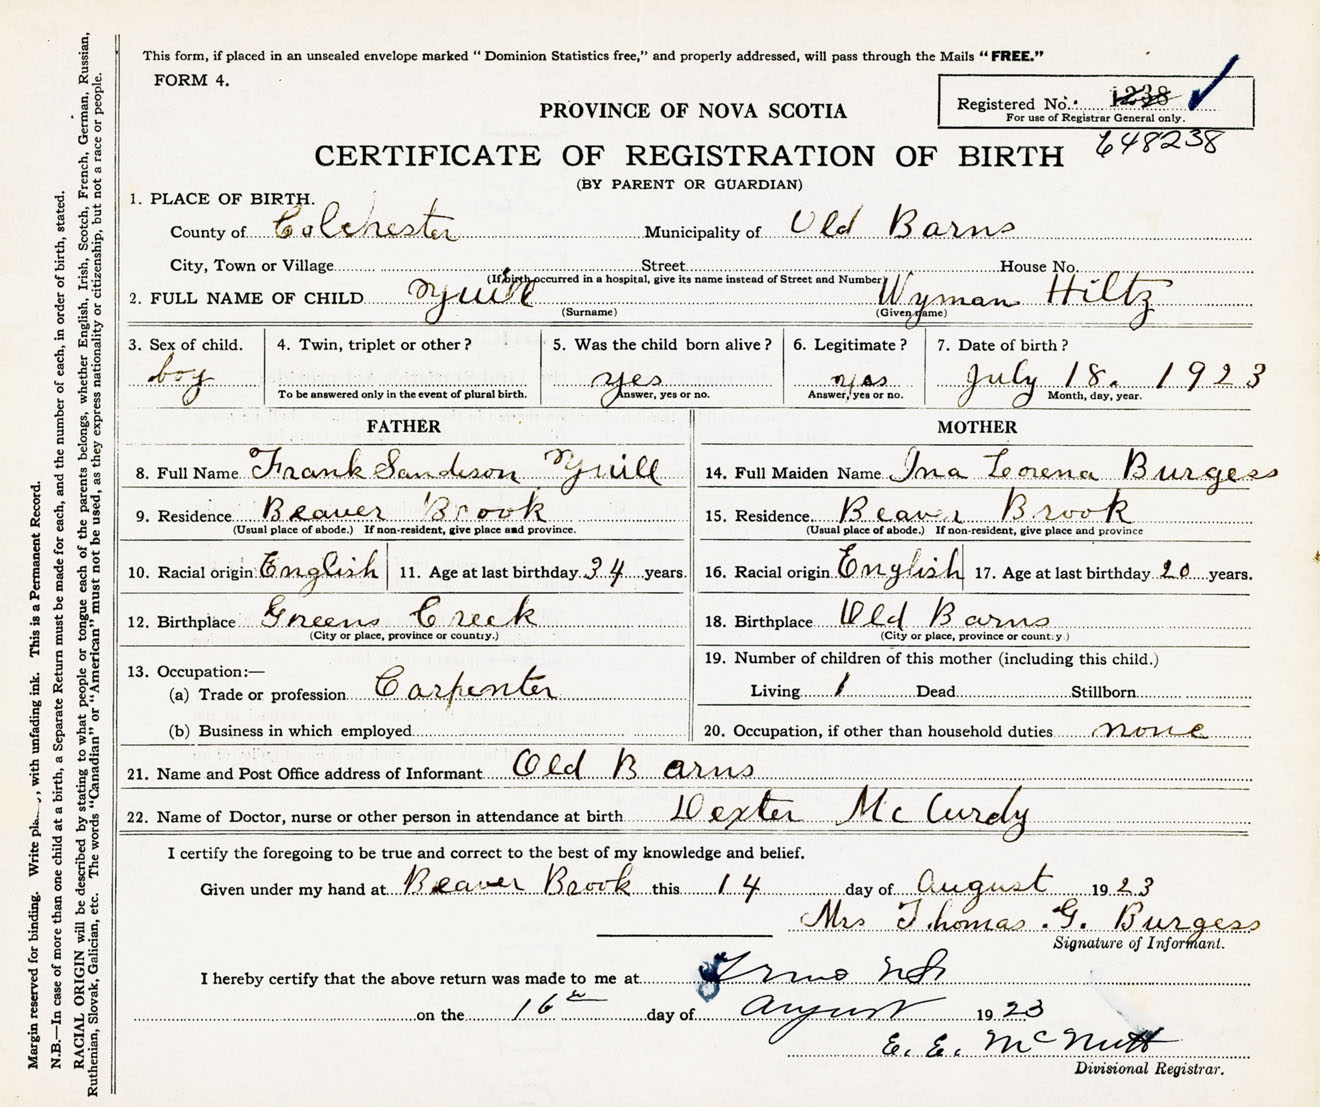 This form, if placed in an unsealed envelope marked "Dominion Statistics free," and properly addressed, will pass through the Mails "FREE."
FORM 4.
Registered No. 1238
For use of Registrar General only.
648238
PROVINCE OF NOVA SCOTIA
CERTIFICATE OF REGISTRATION OF BIRTH
(BY PARENT OR GUARDIAN)
1. PLACE OF BIRTH.
County of Colchester Municipality of Old Barns
City, Town or Village Street House No.
(If birth occurred in a hospital, give its name instead of Street and Number)
2. FULL NAME OF CHILD Yuill Wyman Hiltz
(Surname) (Given name)
3. Sex of child. 4. Twin, triplet or other? 5. Was the child born alive? 6. Legitimate? 7. Date of birth?
boy yes yes July 18. 1923
To be answered only in the event of plural birth. Answer, yes or no. Answer, yes or no. Month, day, year.
FATHER
8. Full Name Frank Sandeson Yuill
9. Residence Beaver Brook
(Usual place of abode.) If non-resident, give place and province.
10. Racial origin English 11. Age at last birthday 34 years.
12. Birthplace Greens Creek
(City or place, province or country.)
13. Occupation:—
(a) Trade or profession Carpenter
(b) Business in which employed
MOTHER
14. Full Maiden Name Ina Lorena Burgess
15. Residence Beaver Brook
(Usual place of abode.) If non-resident, give place and province
16. Racial origin English 17. Age at last birthday 20 years.
18. Birthplace Old Barns
(City or place, province or country.)
19. Number of children of this mother (including this child.)
Living 1 Dead Stillborn
20. Occupation, if other than household duties none
21. Name and Post Office address of Informant Old Barns
22. Name of Doctor, nurse or other person in attendance at birth Dexter McCurdy
I certify the foregoing to be true and correct to the best of my knowledge and belief.
Given under my hand at Beaver Brook this 14 day of August 1923
Mrs Thomas G. Burgess
Signature of Informant.
I hereby certify that the above return was made to me at Truro NS
on the 16th day of August 1923
E. E. McNutt
Divisional Registrar.
Margin reserved for binding. Write with unfading ink. This is a Permanent Record.
N.B.—In case of more than one child at a birth, a Separate Return must be made for each, and the number of each, in order of birth, stated.
RACIAL ORIGIN will be described by stating to what people or tongue each of the parents belongs, whether English, Irish, Scotch, French, German, Russian,
Ruthenian, Slovak, Galician, etc. The words "Canadian" or "American" must not be used, as they express nationality or citizenship, but not a race or people.